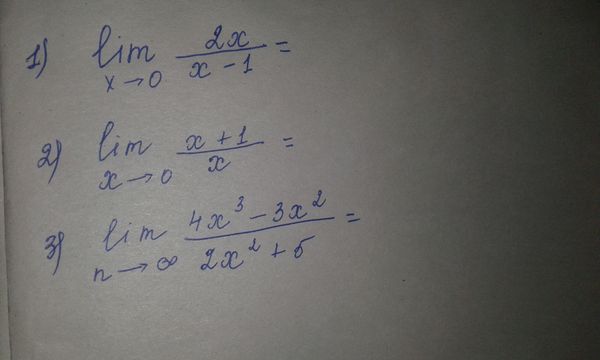 1) lim x→0 2x/(x-1) =
2) lim x→0 (x+1)/x =
3) lim n→∞ (4x³-3x²)/(2x²+5) =